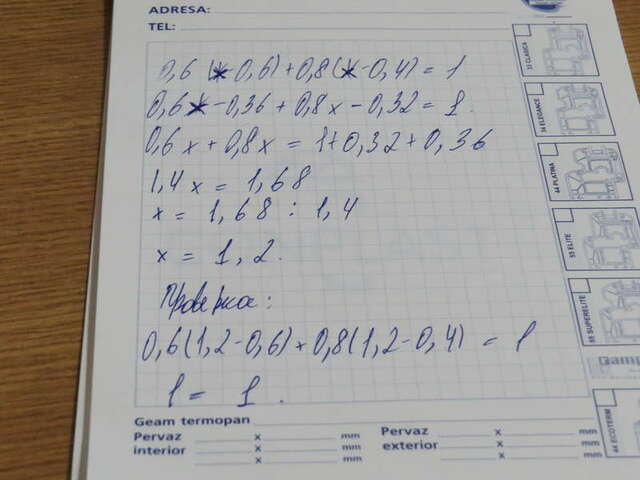 ADRESA:
TEL:
0,6 (x-0,6)+0,8(x-0,4)=1
0,6x-0,36+0,8x-0,32=1.
0,6x+0,8x=1+0,32+0,36
1,4x=1,68
x=1,68:1,4
x=1,2.
Проверка:
0,6(1,2-0,6)+0,8(1,2-0,4)=1
1=1.
Geam termopan
Pervaz x mm Pervaz x mm
interior x mm exterior x mm
x mm x mm
37 CLASICA
34 ELEGANCE
44 PLATINA
55 ELITE
55 SUPERELITE
44 ECOTERM